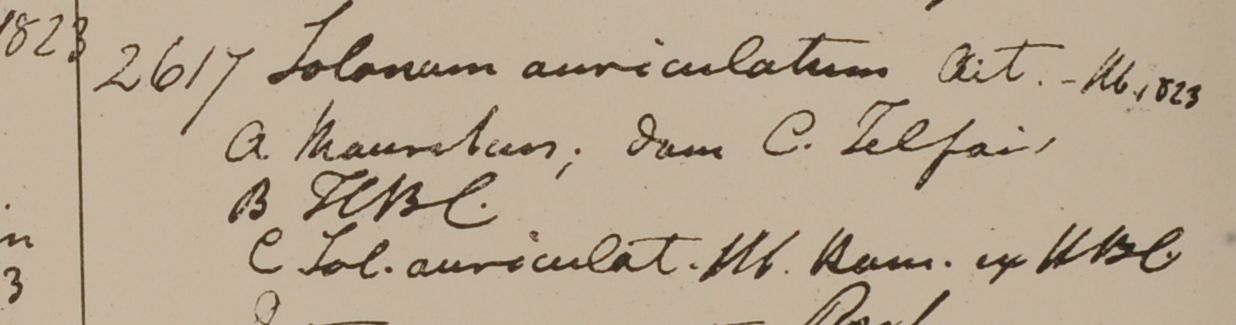 1823
2617 Solanum auriculatum Ait. - Hb. 1823
a. Mauritius; dom C. Telfair
B HBC.
C Sol. auriculat. Hb. Ham. ex HBC.
n
3